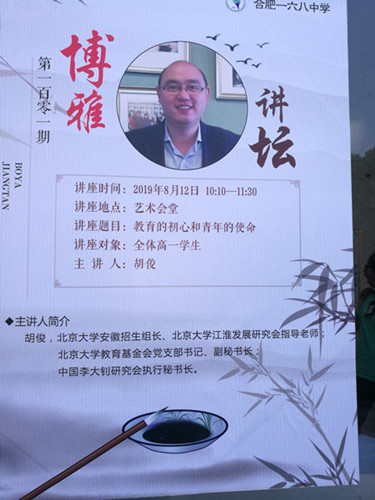 合肥一六八中学
博雅
讲坛
第一百零一期
BOYA
JIANGTAN
讲座时间：2019年8月12日 10:10—11:30
讲座地点：艺术会堂
讲座题目：教育的初心和青年的使命
讲座对象：全体高一学生
主 讲 人：胡俊
◆主讲人简介
胡俊，北京大学安徽招生组长、北京大学江淮发展研究会指导老师；
北京大学教育基金会党支部书记、副秘书长；
中国李大钊研究会执行秘书长。